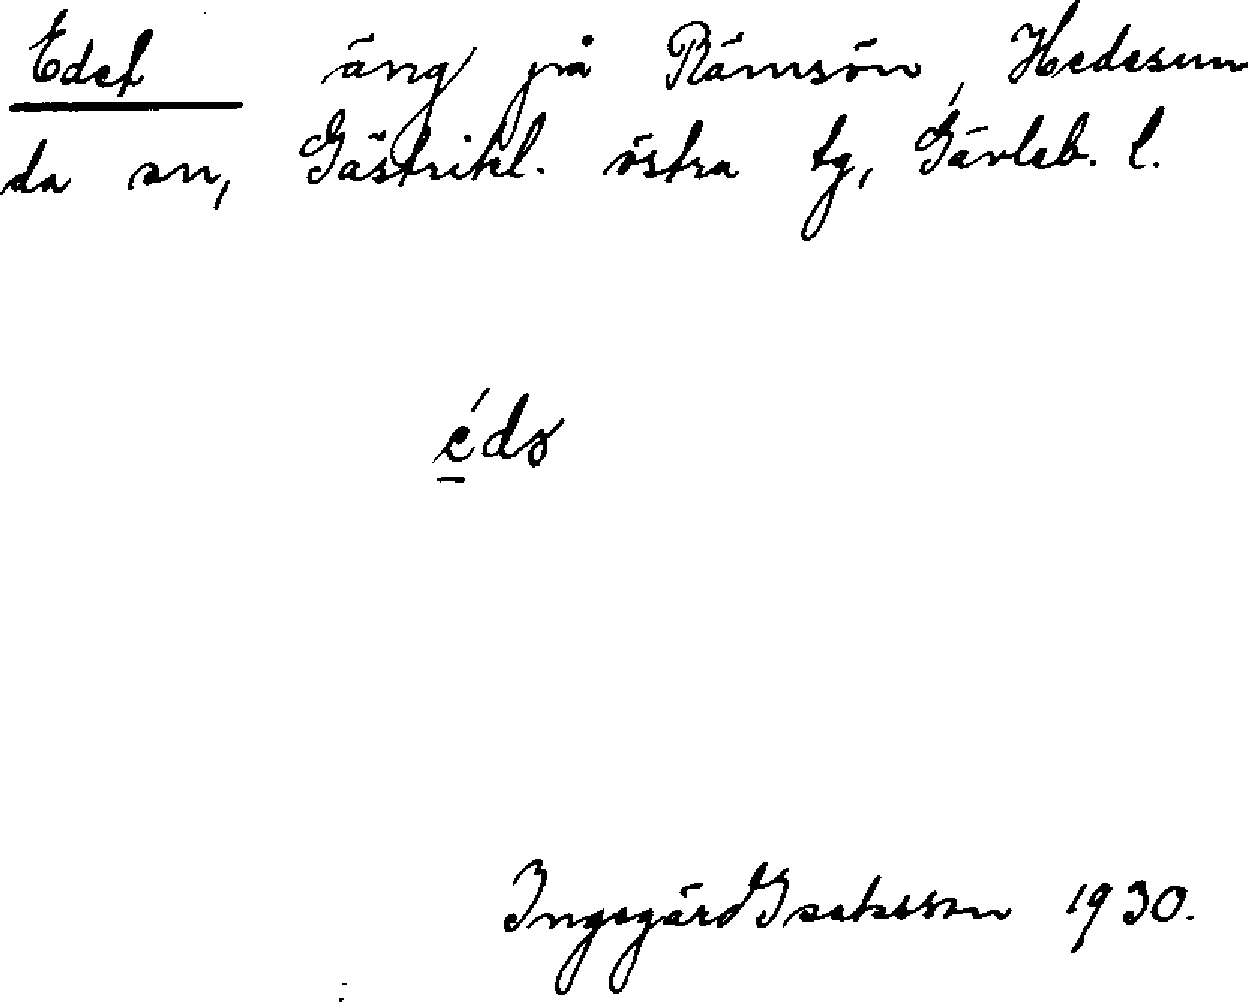 Edet äng på Rämsön, Hedesun
da sn, Gästrikl. östra tg, Gävleb. l.
édə
Ingegärd Isaksson 1930.